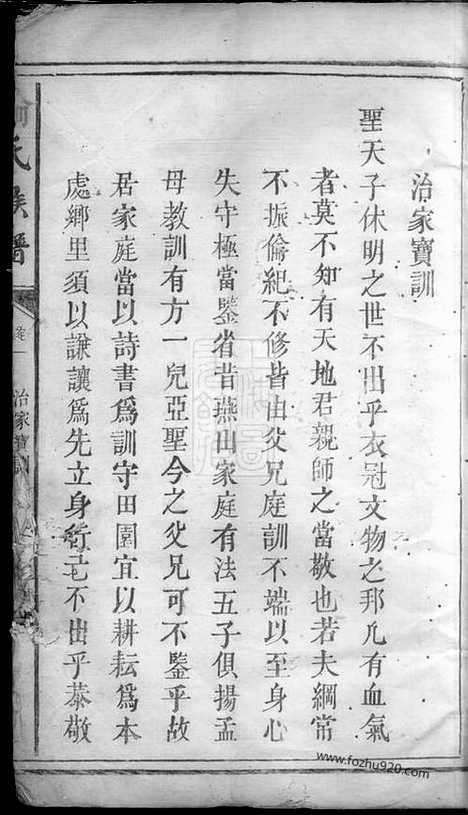 治家寶訓
聖天子休明之世不出乎衣冠文物之邦凡有血氣
者莫不知有天地君親師之當敬也若夫綱常
不振倫紀不修皆由父兄庭訓不端以至身心
失守極當鑒省昔燕山家庭有法五子俱揚孟
母教訓有方一兒亞聖今之父兄可不鑒乎故
居家庭當以詩書爲訓守田園宜以耕耘爲本
處鄉里須以謙讓爲先立身行己不出乎恭敬
氏族譜
卷一
治家寶訓
www.fozhu920.com